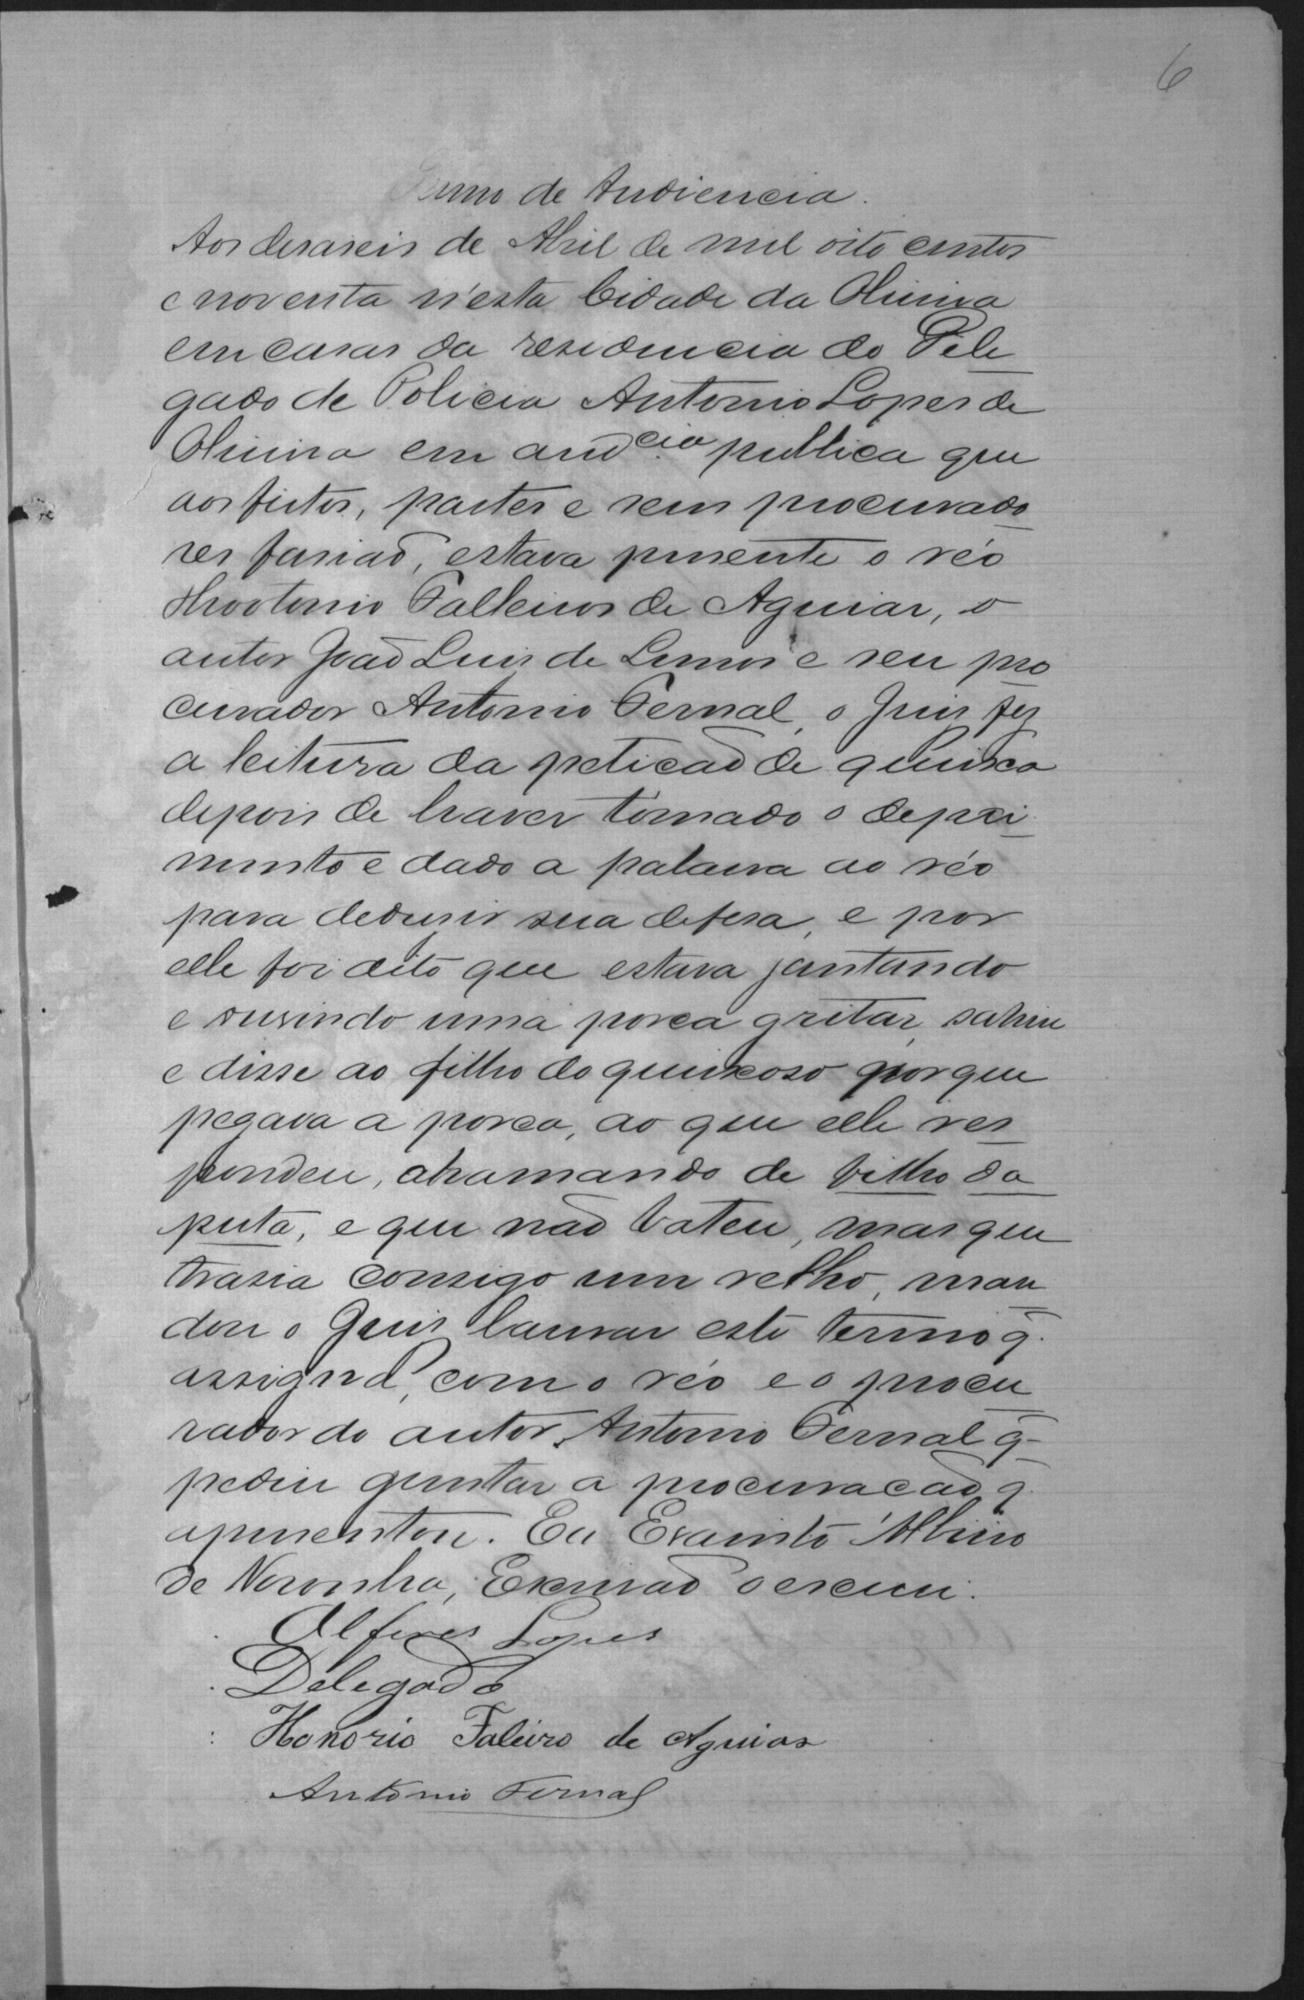 6
Termo de Audiencia.
Aos desaseis de Abril de mil oito centos
e noventa n'esta Cidade da Oliveira
em casas da residencia do Dele
gado de Policia Antonio Lopes de
Oliveira em aud.cia publica que
aos feitos, partes e seus procurado
res fasiaõ, estava presente o réo
Falleiros de Aguiar, o
autor Joaõ Luis de Lemos e seu pro
curador Antonio Fernal, o Juis fez
a leitura da peticaõ de queixa
depois de haver tomado o depoi
mento e dado a palavra ao réo
para dedusir sua defesa, e por
elle foi dito que estava jantando
e ouvindo uma porca gritar, sahiu
e disse ao filho do queixoso porque
pegava a porca, ao que elle res
pondeu, chamando de filho da
puta, e que naõ bateu, mas que
trasia consigo um relho, man
dou o Juis lavrar este termo q.
assigna, com o réo e o procu
rador do autor, Antonio Fernal q.
pediu juntar a procuracaõ q.
apresentou. Eu Evaristo Albino
de Noronha, Escrivaõ o escrevi.
Alferes Lopes
Delegado
Honorio Faleiro de Aguiar
Antonio Fernal